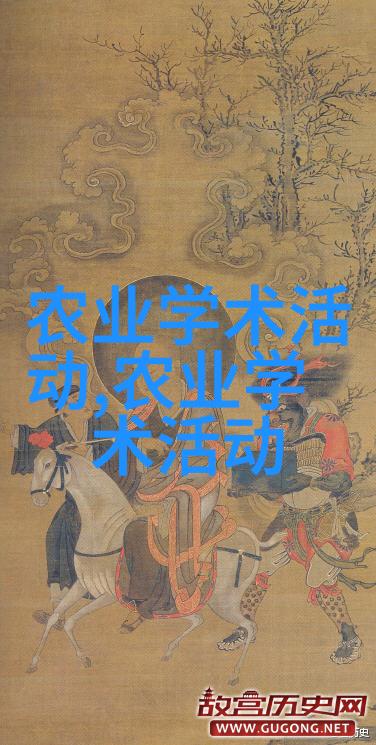 农业学术活
动,农业学
术活动
故宫历史网
WWW.GUGONG.NET
历史